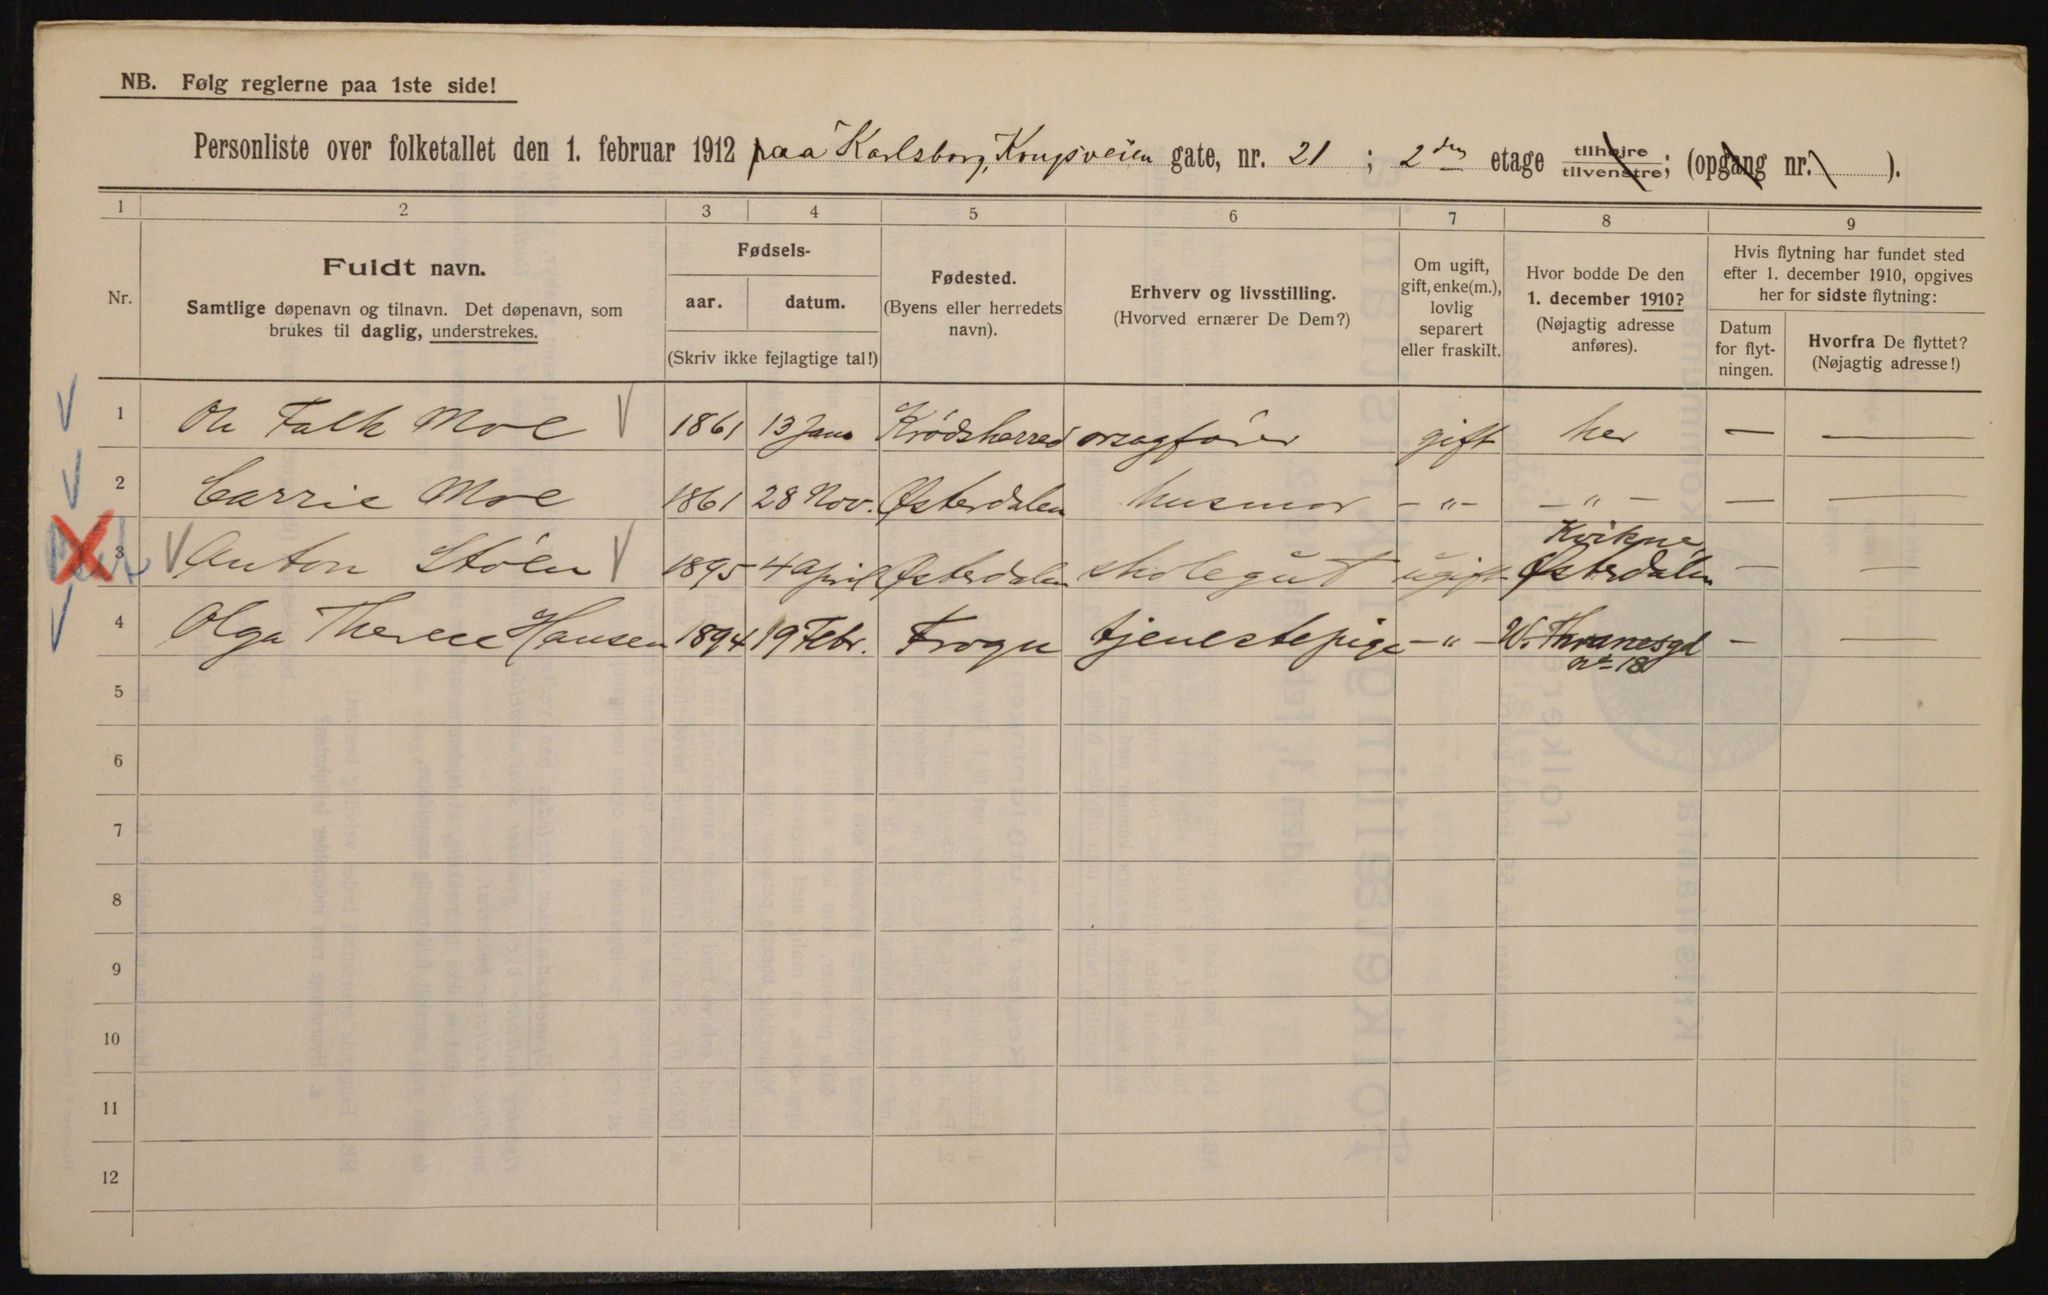 NB. Følg reglerne paa 1ste side!
Personliste over folketallet den 1. februar 1912 paa Karlsborg, Kongsveien gate, nr. 21 ; 2den etage tilhøjre tilvenstre; (opgang nr. ).
1 2 3 4 5 6 7 8 9
Nr.
Fuldt navn.
Samtlige døpenavn og tilnavn. Det døpenavn, som
brukes til daglig, understrekes.
Fødsels-
aar. datum.
(Skriv ikke fejlagtige tal!)
Fødested.
(Byens eller herredets
navn).
Erhverv og livsstilling.
(Hvorved ernærer De Dem?)
Om ugift,
gift, enke(m.),
lovlig
separert
eller fraskilt.
Hvor bodde De den
1. december 1910?
(Nøjagtig adresse
anføres).
Hvis flytning har fundet sted
efter 1. december 1910, opgives
her for sidste flytning:
Datum
for flyt-
ningen.
Hvorfra De flyttet?
(Nøjagtig adresse!)
1 Ole Falk Moe 1861 13 Jan Krødsherred orsagfører gift her — —
2 Carrie Moe 1861 28 Nov. Østerdalen husmor - " - - " - — —
3 Anton Støen 1895 4 April Østerdalen skolegut ugift Kvikne, Østerdalen — —
4 Olga Therese Hansen 1894 19 Febr. Frogn tjenestepige - " - W. Thranesgd
nr 18 — —
5
6
7
8
9
10
11
12